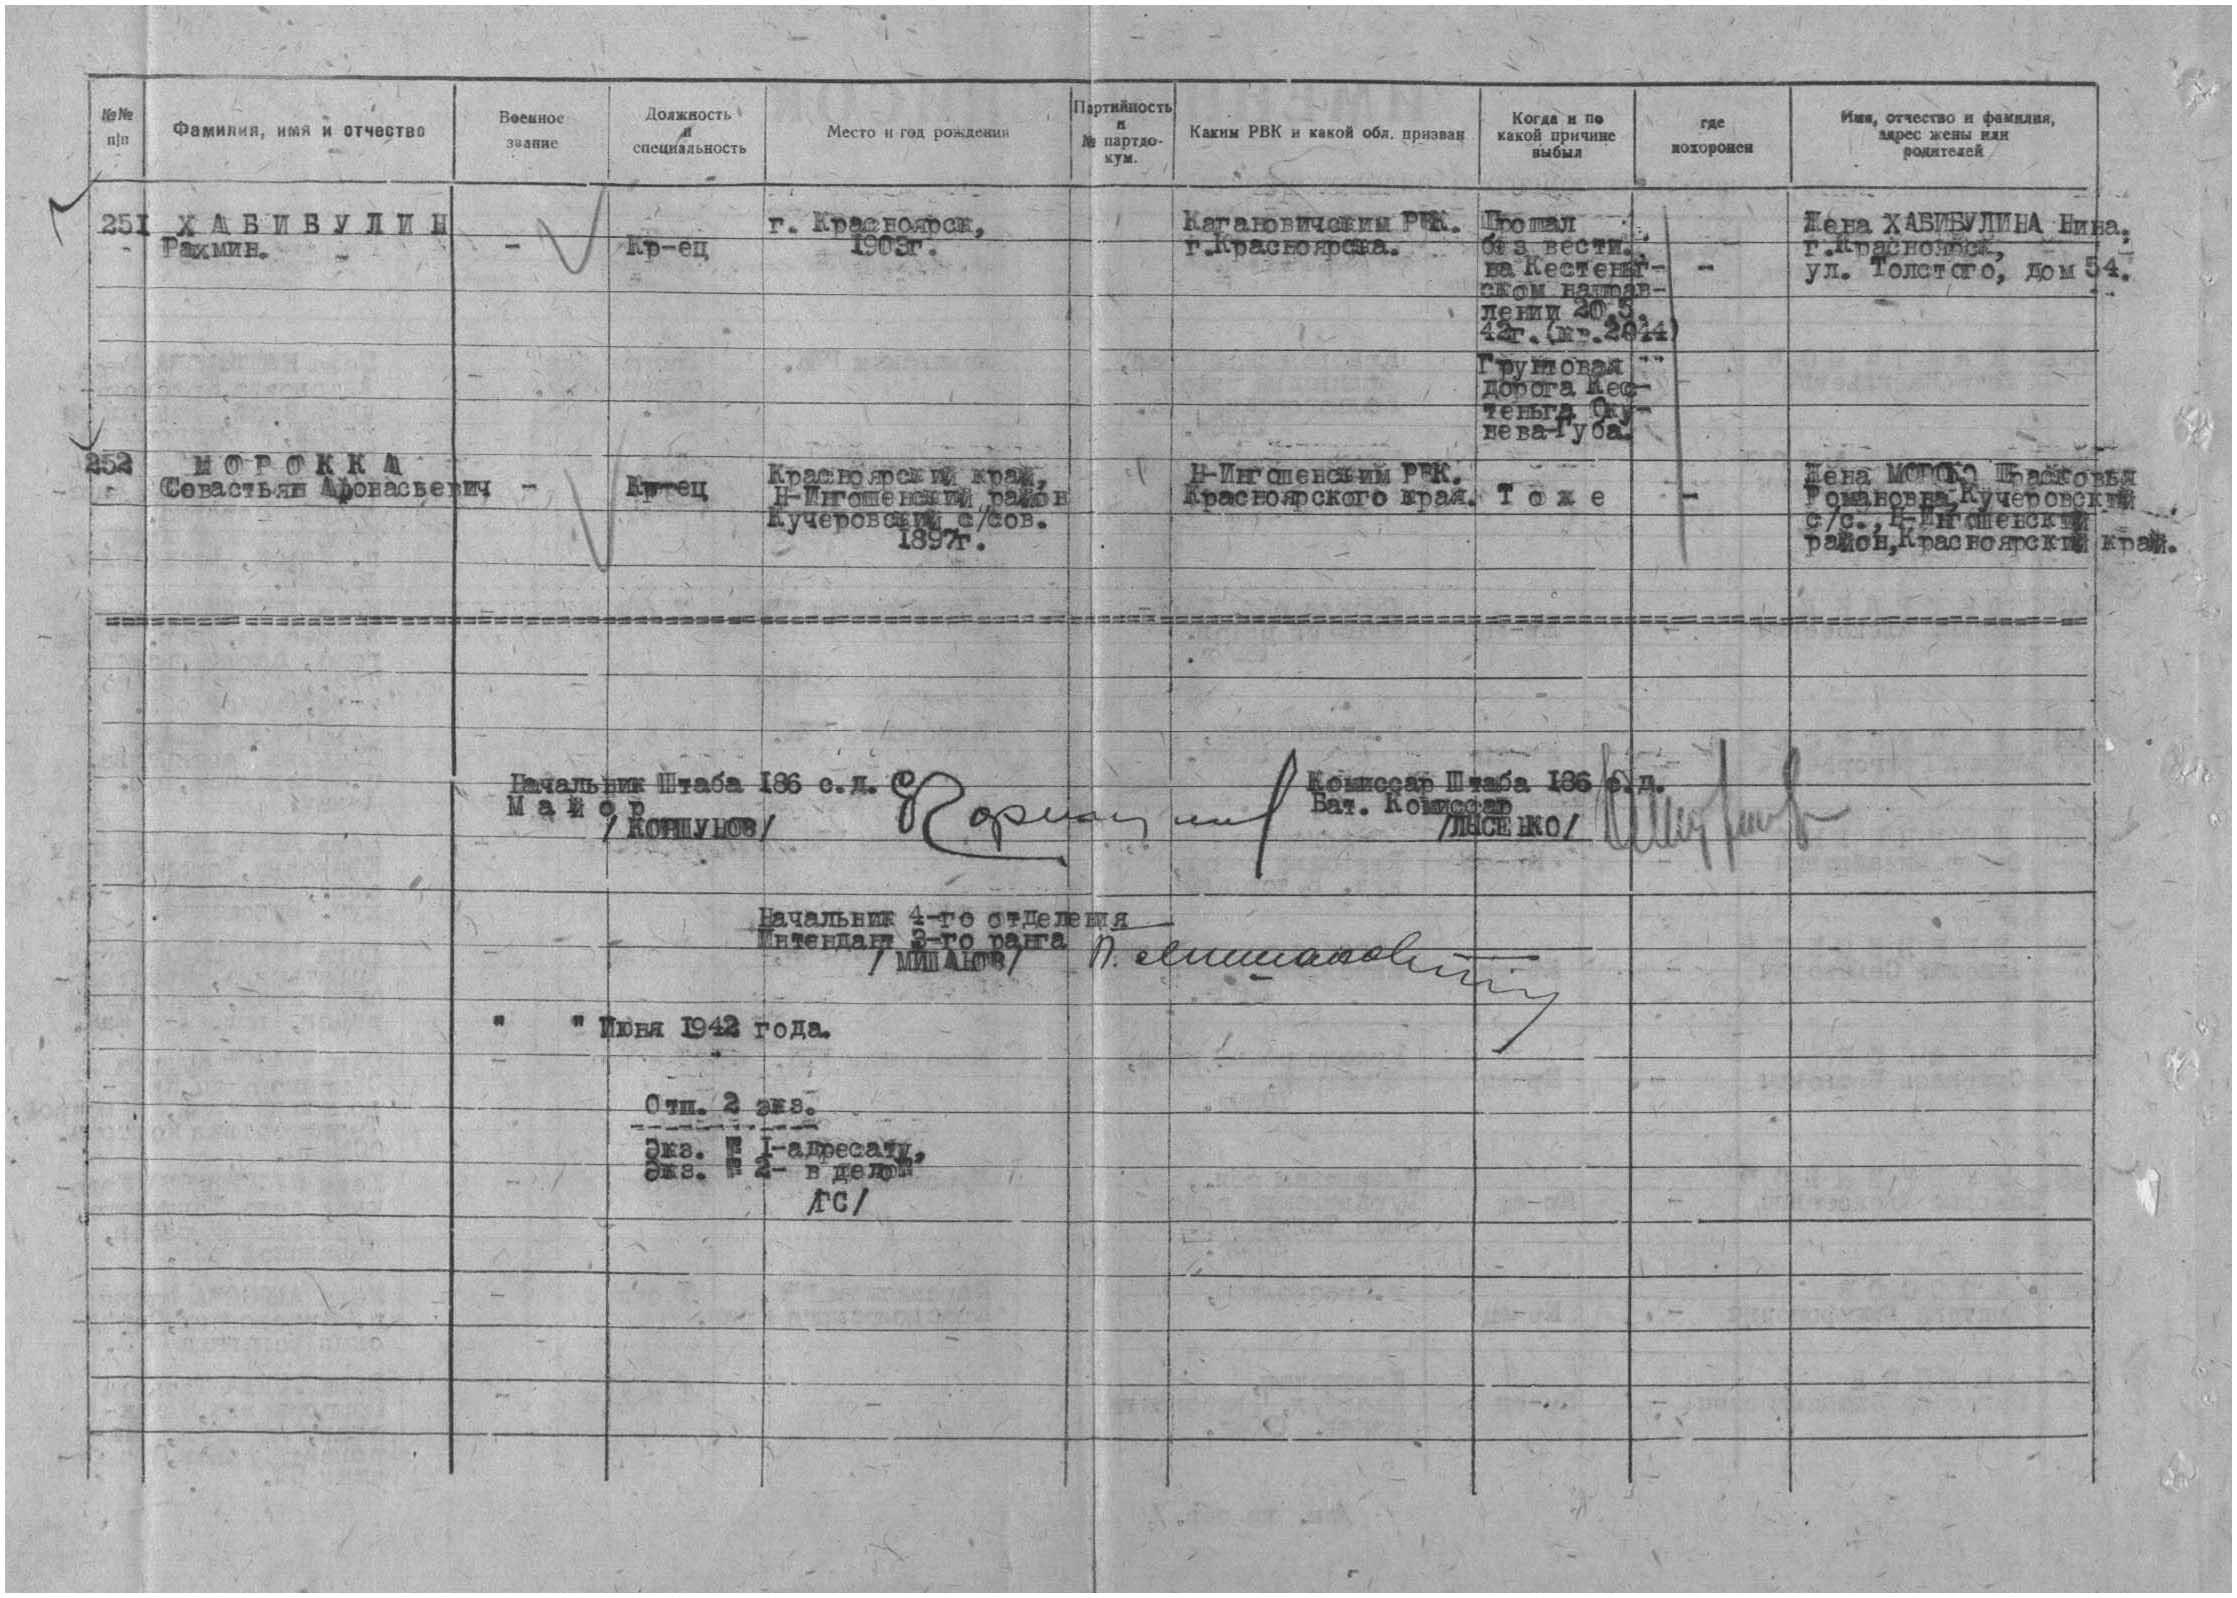 №№ п|п
Фамилия, имя и отчество
Военное звание
Должность и специальность
Место и год рождения
Партийность и № партдокум.
Каким РВК и какой обл. призван
Когда и по какой причине выбыл
где похоронен
Имя, отчество и фамилия, адрес жены или родителей
251 ХАБИБУЛИН
Рахмин.
-
Кр-ец
г. Красноярск,
1903г.
Кагановичским РВК.
г.Красноярска.
Пропал
без вести.
на Кестеньг-
ском направ-
лении 20.5.
42г. (кв.2044)
Грунтовая
дорога Кес-
теньга Оку-
нева-Губа.
-
Жена ХАБИБУЛИНА Нина.
г.Красноярск,
ул. Толстого, дом 54.
252 МОРОККА
Севастьян Афонасьевич
-
Кр-ец
Красноярский край,
Н-Ингошенский район
Кучеровский с/сов.
1897г.
Н-Ингошенским РВК.
Красноярского края.
Тоже
-
Жена МОРОКО Прасковья
Романовна,Кучеровский
с/с.,Н-Ингошенский
район,Красноярский край.
Начальник Штаба 186 с.д.
Майор
/КОРШУНОВ/
Комиссар Штаба 186 с.д.
Бат. Комиссар
/ЛЫСЕНКО/
Начальник 4-го отделения
Интендант 3-го ранга
/МИШАКОВ/
" " Июня 1942 года.
Отп. 2 экз.
Экз. № 1-адресату,
Экз. № 2- в дело
/ГС/